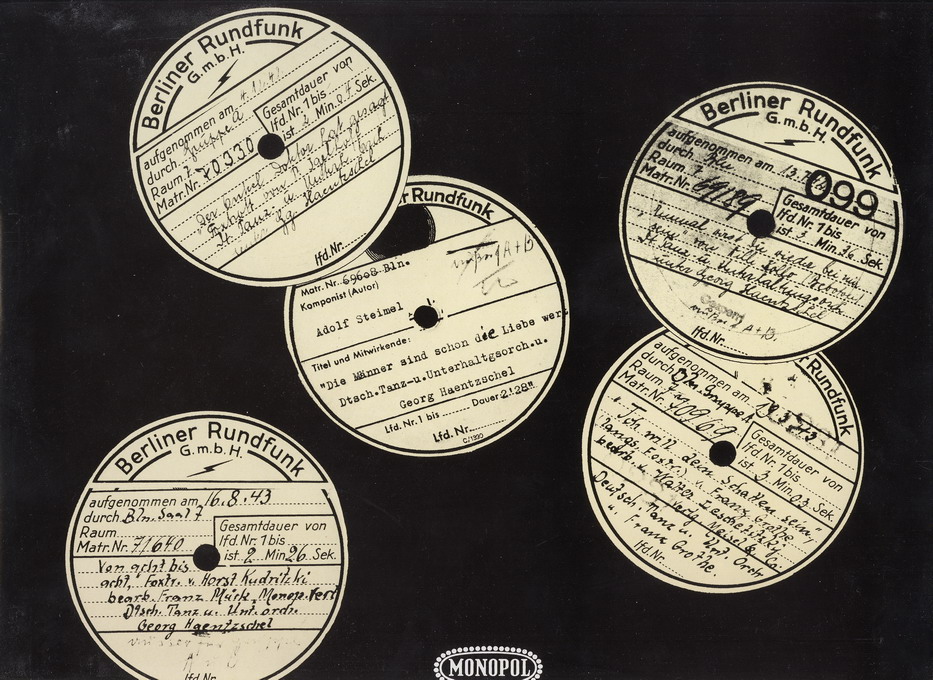 Berliner Rundfunk
G.m.b.H.
aufgenommen am
durch Gruppe A
Raum 7
Matr.Nr. 70330
Gesamtdauer von
lfd.Nr. 1 bis
ist 2 Min. 07 Sek.
Der Onkel Doktor hat gesagt
Georg Haentzschel
lfd.Nr.
r Rundfunk
Matr. Nr. 69608 Bln.
Komponist (Autor)
Adolf Steimel
Titel und Mitwirkende:
"Die Männer sind schon die Liebe wert
Dtsch.Tanz-u.Unterhaltgsorch.u.
Georg Haentzschel
Lfd. Nr. 1 bis Dauer 2'28"
Lfd. Nr.
C/1390
Berliner Rundfunk
G.m.b.H.
aufgenommen am 13.
durch Bln
Raum
Matr.Nr. 69189
099
Gesamtdauer von
lfd.Nr. 1 bis
ist 3 Min. 26 Sek.
Einmal wirst du wieder bei mir
sein, von Willy Kollo
unter Georg Haentzschel
Gesperrt
lfd.Nr.
Rundfunk
aufgenommen am
durch Bln Gruppe A
Raum
Matr.Nr. 70969
Gesamtdauer von
lfd.Nr. 1 bis
ist 3 Min. 03 Sek.
"Ich will dein Schatten sein,
Tango v. Franz Grothe
bearb. v. Walter Leschetitzky
Verlg.
Deutsch. Tanz u. Unt. Orch
u. Franz Grothe.
lfd.Nr.
Berliner Rundfunk
G.m.b.H.
aufgenommen am 16.8.43
durch Bln. Saal 7
Raum
Matr.Nr. 71640
Gesamtdauer von
lfd.Nr. 1 bis
ist 2 Min 26 Sek.
Von acht bis
acht, Foxtr. v. Horst Kudritzki
bearb. Franz Mück, Monop. Verl
Dtsch. Tanz u. Unt. orch.
Georg Haentzschel
lfd.Nr.
MONOPOL